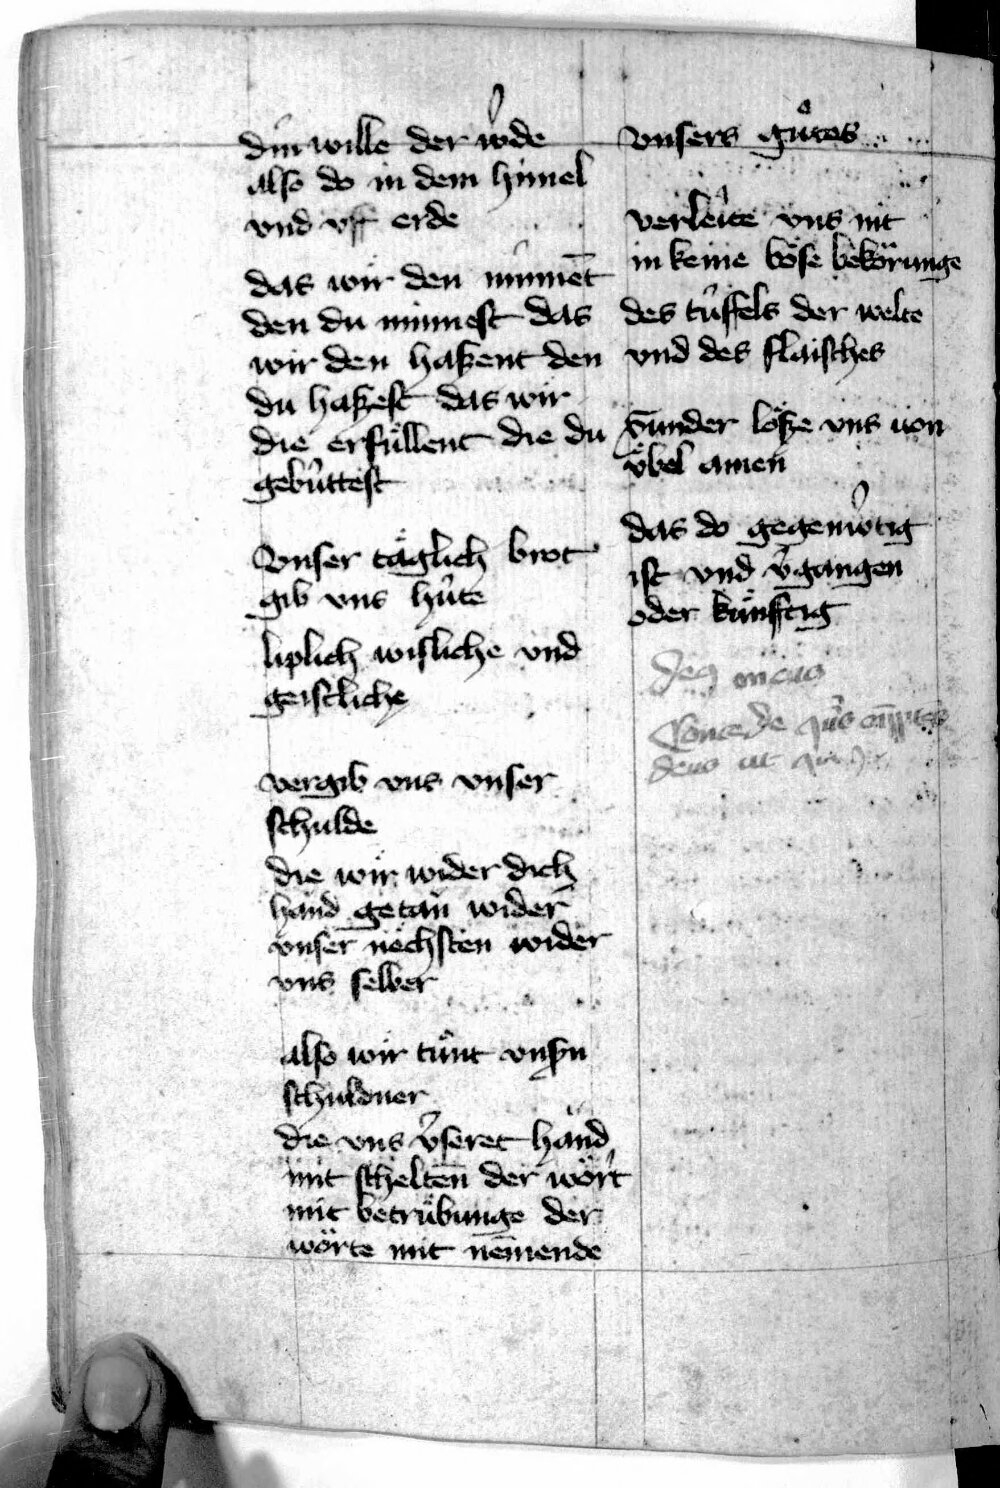 din wille der w̓de
also do in dem himel
vnd vff erde
das wir den minnēt
den du minnest das
wir den haſzent den
du haſzest das wir
die erfüllent die du
gebüttest
Vnser täglich brot
gib vns hüte
liplich wisliche vnd
geistliche
vergib vns vnser
schulde
die wir wider dich
hand getan wider
vnser nechsten wider
vns selber
also wir tünt vnſn
schuldner
die vns v̓seret hand
mit scheltēn der wört
mit betrübunge der
wörte mit nēmende
vnsers gůtes
verleite vns nit
in keine böse bekörunge
des tüffels der welte
vnd des flaisches
Sunder löſze vns von
vbel amen
das do gegenw̓tig
ist vnd v̓gangen
oder künfftig
Concede
deus ut